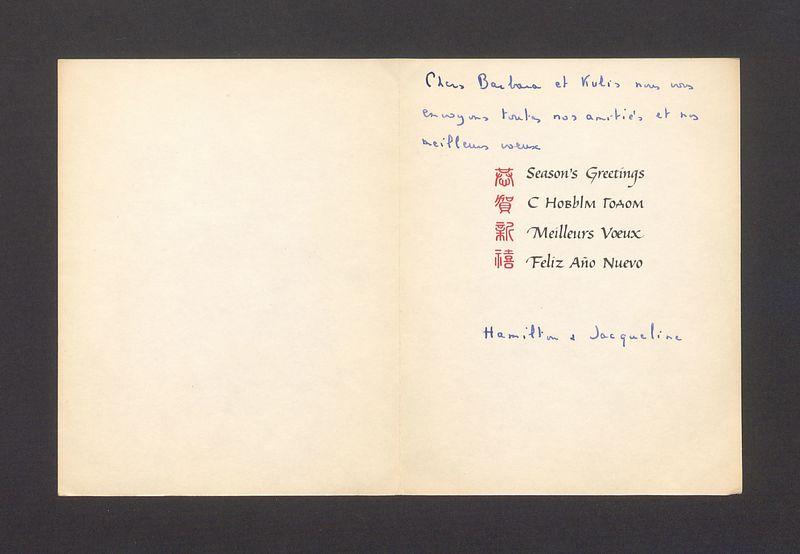 Chers Barbara et Kulis nous vous
envoyons toutes nos amitiés et nos
meilleurs voeux
恭賀新禧
Season's Greetings
С Новым Годом
Meilleurs Vœux
Feliz Año Nuevo
Hamilton & Jacqueline